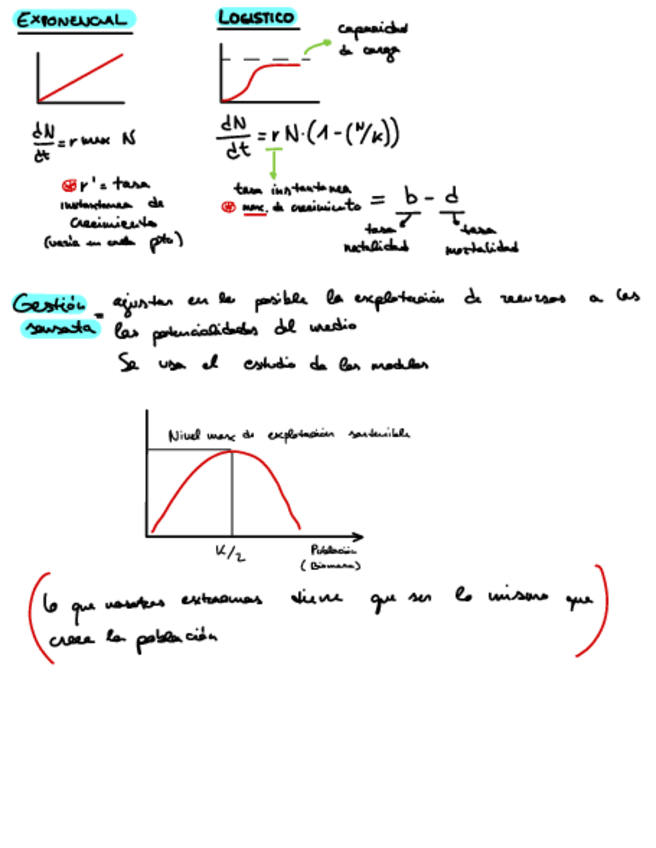 EXPONENCIAL
dN/dt = r max N
r' = tasa
instantanea de
crecimiento
(varia en cada pto)
LOGISTICO
capacidad
de carga
dN/dt = r N·(1-(N/K))
tasa instantanea
max. de crecimiento = b - d
tasa natalidad
tasa mortalidad
Gestión = ajustar en lo posible la explotación de recursos a las
sensata las potencialidades del medio
Se usa el estudio de los modelos
Nivel max de explotación sostenible
K/2
Población
(Biomasa)
Lo que nosotros extraemos tiene que ser lo mismo que
crece la población